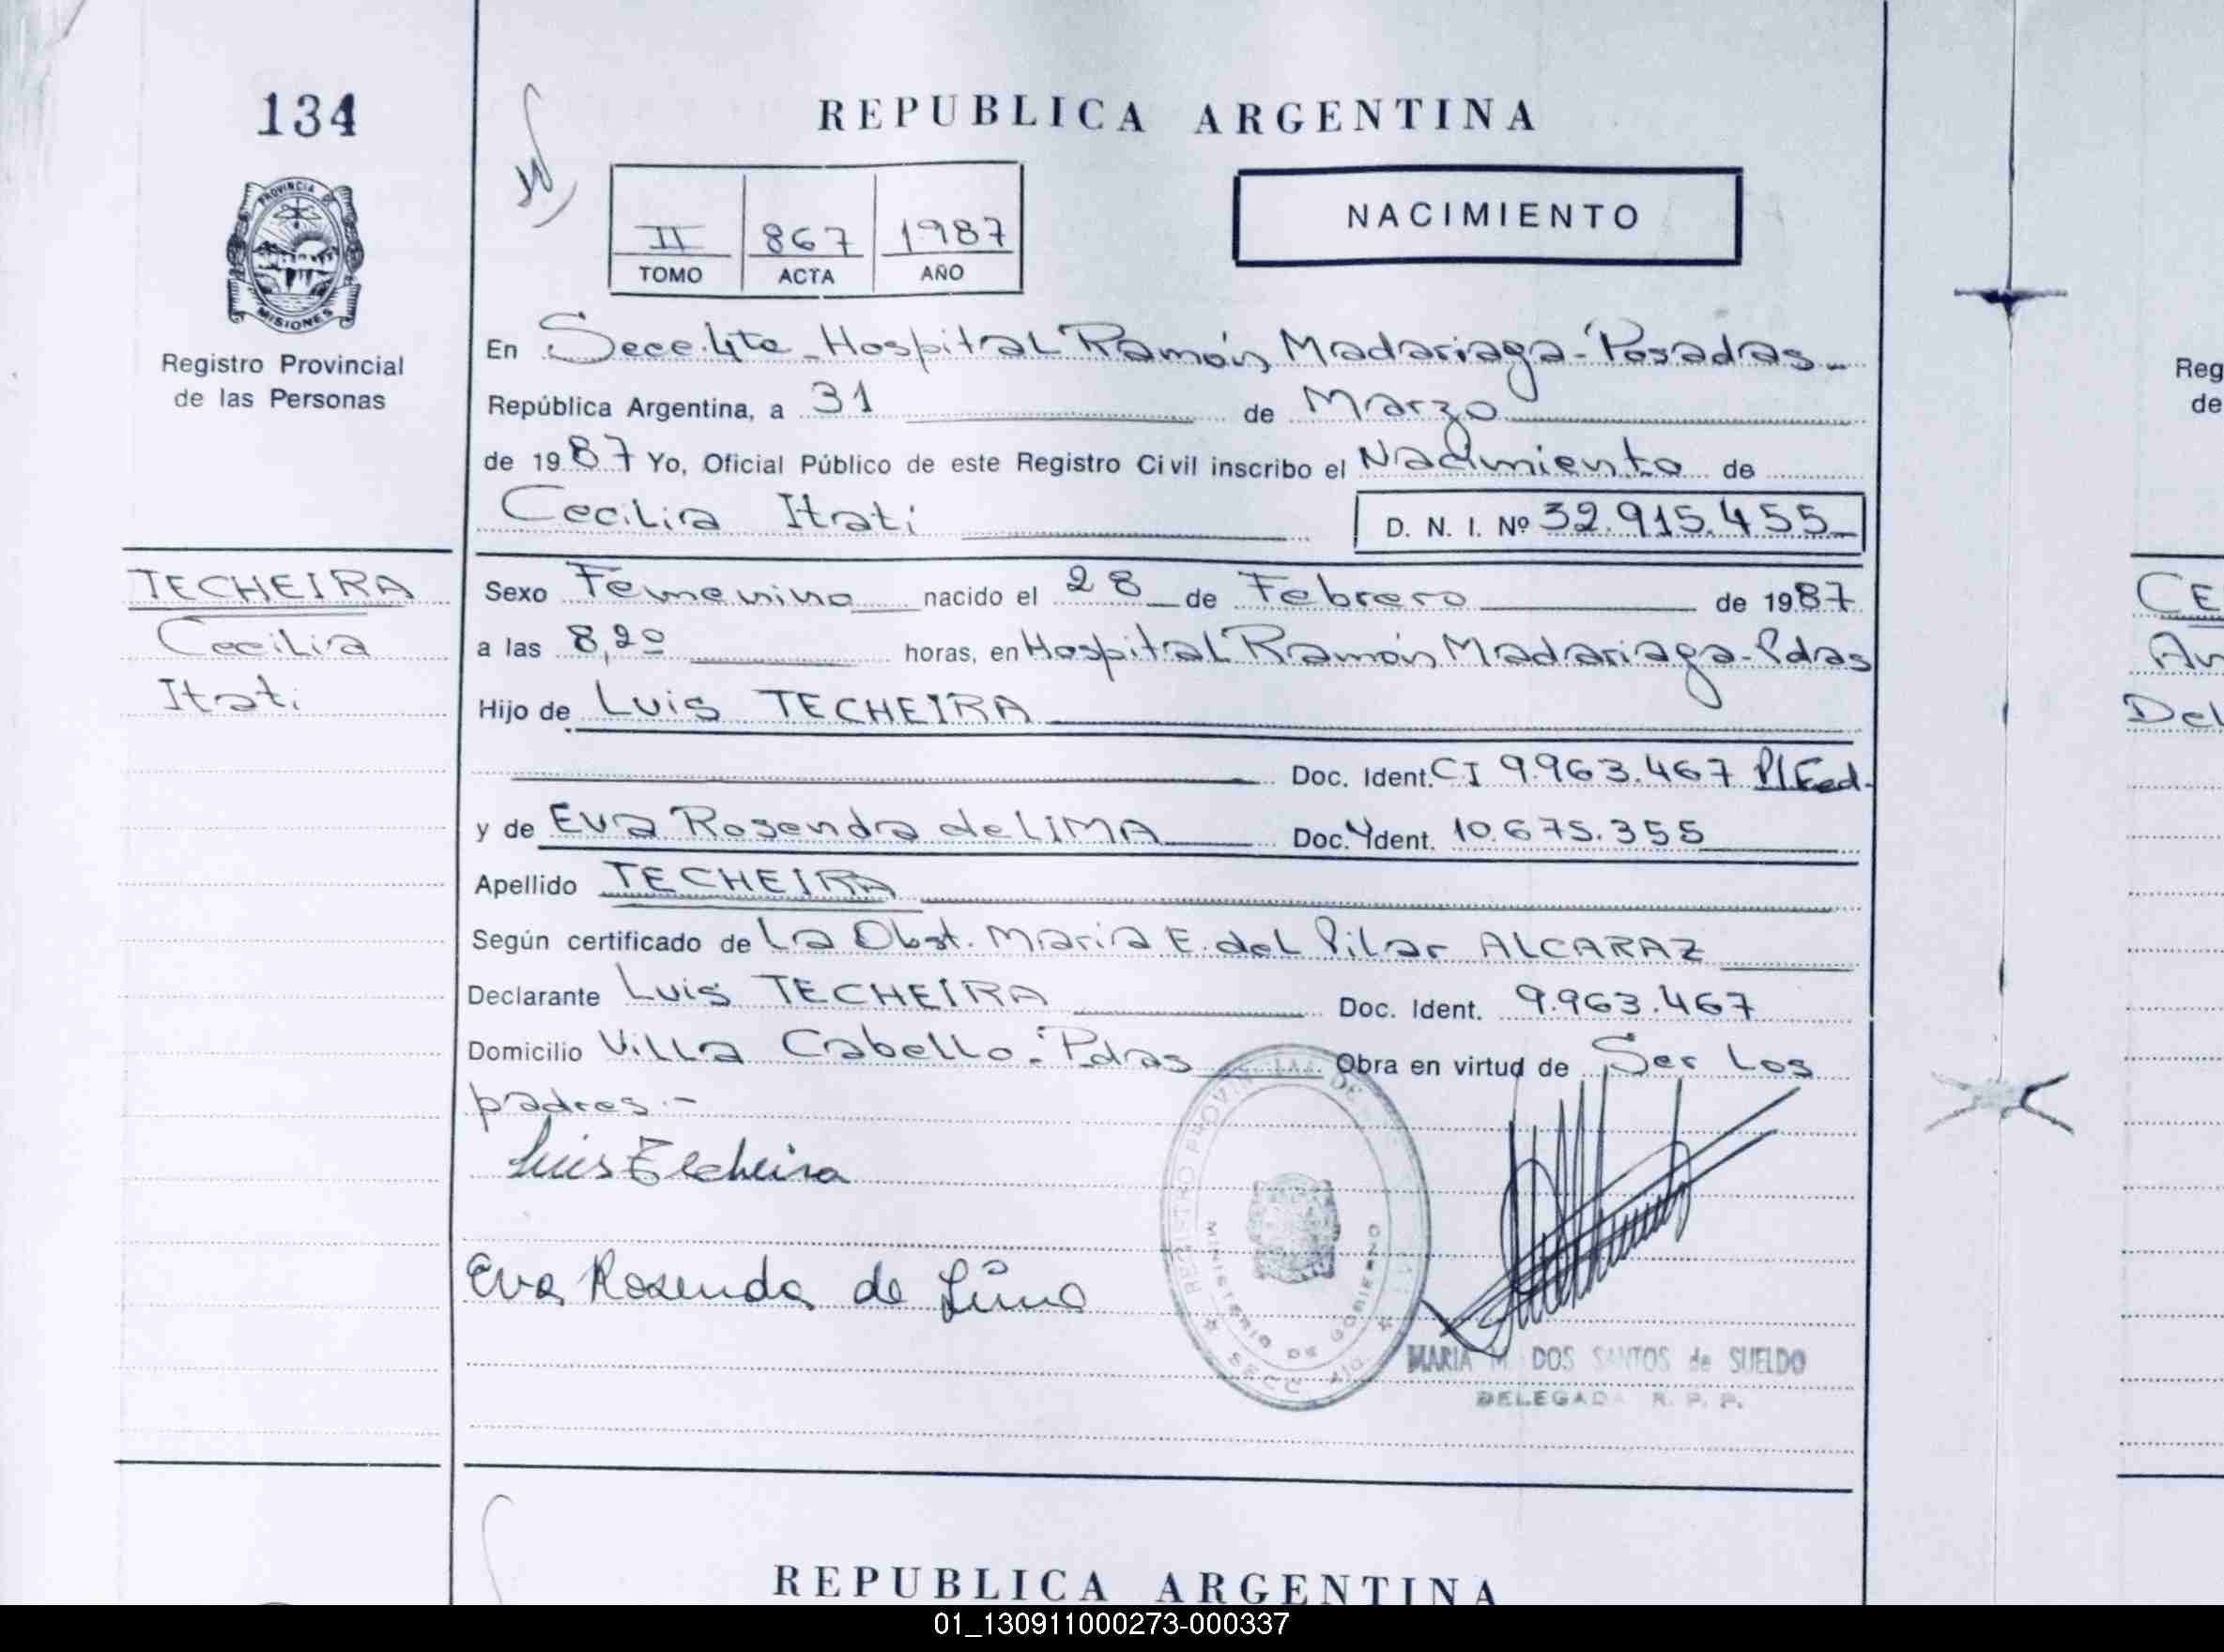 134
REPUBLICA ARGENTINA
PROVINCIA DE
MISIONES
Registro Provincial
de las Personas
II 867 1987
TOMO ACTA AÑO
NACIMIENTO
En Secc. 4ta - Hospital Ramón Madariaga - Posadas -
República Argentina, a 31 de Marzo
de 1987 Yo, Oficial Público de este Registro Civil inscribo el Nacimiento de
Cecilia Itati D. N. I. Nº 32.915.455
TECHEIRA
Cecilia
Itati
Sexo Femenino nacido el 28 de Febrero de 1987
a las 8,20 horas, en Hospital Ramón Madariaga - Pdas
Hijo de Luis TECHEIRA
Doc. Ident. CI 9.963.467 Pl Fed.
y de Eva Rosenda de LIMA Doc. Ydent. 10.675.355
Apellido TECHEIRA
Según certificado de La Obst. Maria E. del Pilar ALCARAZ
Declarante Luis TECHEIRA Doc. Ident. 9.963.467
Domicilio Villa Cabello - Pdas Obra en virtud de Ser Los
padres.-
Luis Techeira
Eva Rosenda de Lima
REGISTRO PROVINCIAL DE
MINISTERIO DE GOBIERNO
MARIA M. DOS SANTOS de SUELDO
DELEGADA R. P. P.
Reg
de
CE
An
Del
REPUBLICA ARGENTINA
01_130911000273-000337